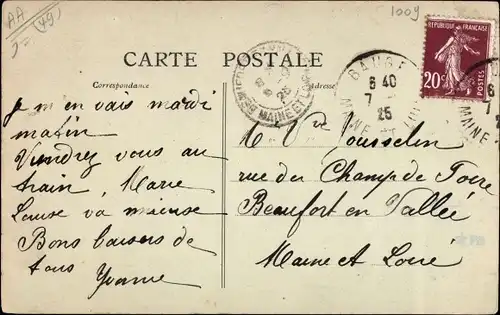 AA
(49)
1009
RÉPUBLIQUE FRANÇAISE
20c
CARTE POSTALE
Correspondance
Adresse
BAUGÉ
6 40
7
25
MAINE ET LOIRE
MAINE ET LOIRE
je m en vais mardi
matin
Viendrez vous au
train, Marie
Louise va mieux
Bons baisers de
tous Yvonne
M. Vve Jousselin
rue du Champ de Foire
Beaufort en Vallée
Maine et Loire